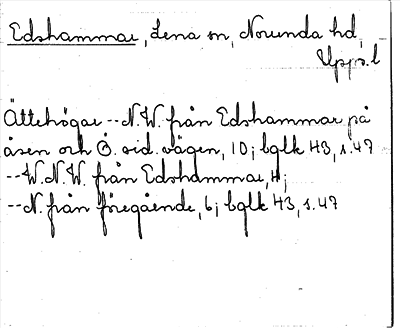 Edshammar, Lena sn, Norunda hd,
Upps.l
Ättehögar -- N.W. från Edshammar på
åsen och Ö. vid vägen, 10; bglk 43, s.47
-- W.N.W. från Edshammar, 4;
-- N. från föregående, 6; bglk 43, s.47